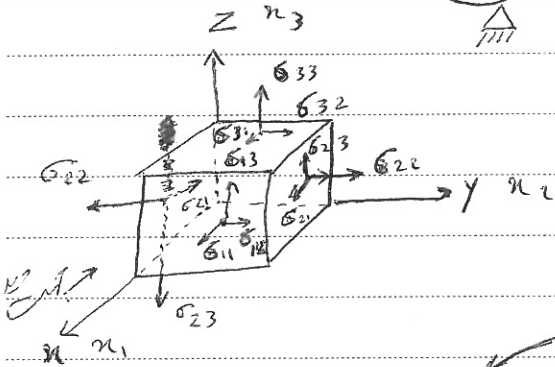 Z x3
σ33
σ32
σ31
σ13 σ23
σ22 σ22
σ21 σ21
Y x2
σ11 σ12
σ23
x x1